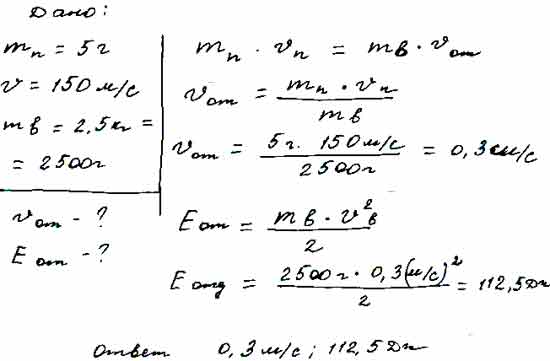 Дано:
mп = 5г
v = 150 м/с
mв = 2,5кг =
= 2500г
vот - ?
Eот - ?
mп · vп = mв · vот
vот = mп · vп / mв
vот = 5г. 150 м/с / 2500г = 0,3 м/с
Eот = mв · v²в / 2
Eотд = 2500г · 0,3(м/с)² / 2 = 112,5Дж
Ответ 0,3 м/с; 112,5Дж